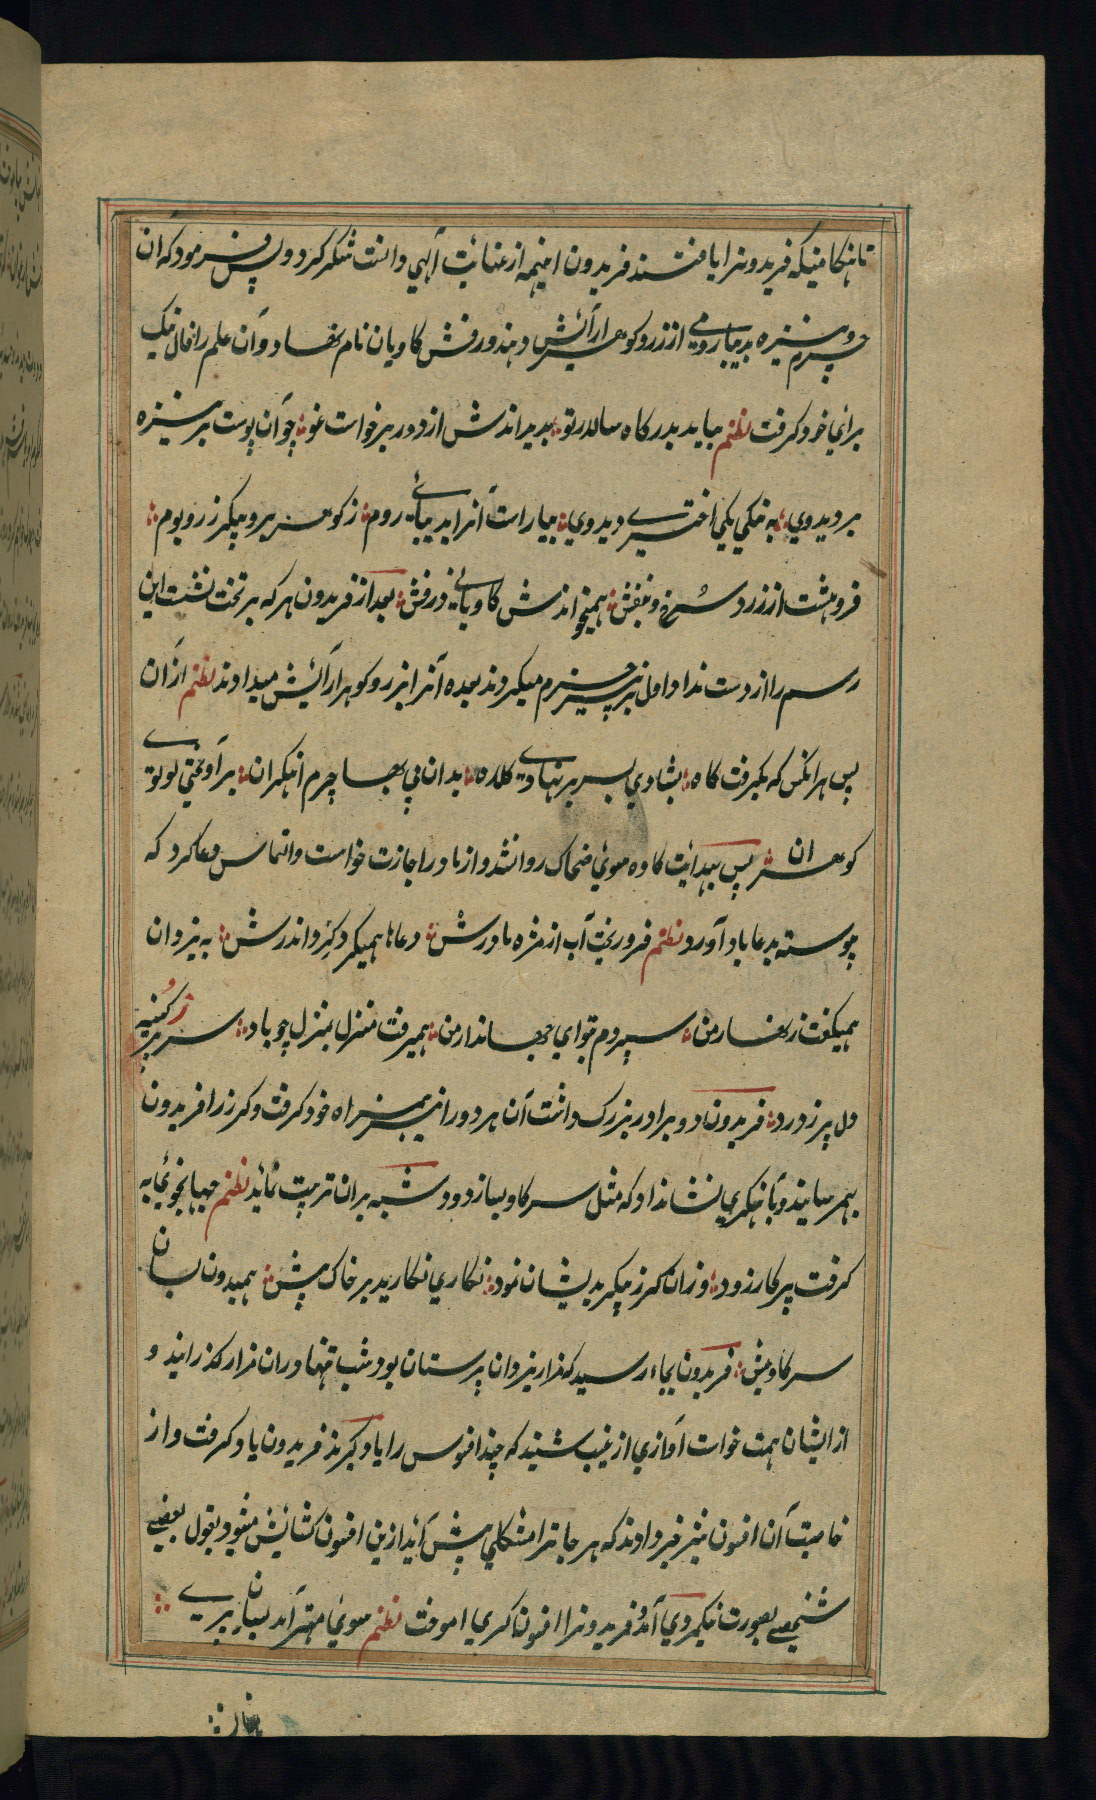 تا هنگامیکه فریدونرا یافتند فریدون اینهمه از عنایت الهی دانست شکر کرد و پس فرمود که ان
چرم و نیزه بدیبا رومی از زر و کوهر آرائش دهند و درفش کاویان نام نهاد و آن علم را فال نیک
برای خود کرفت نظم بیامد بدرکاه سالار نو ؛ بدیداندش از دور برخواست غو ؛ چو آن پوست بر نیزه
بر دید وی ؛ به نیکی یکی اختری دید وی ؛ بیاراست آنرا بدیبای روم ؛ ز کوهر برو پیکر زر و بوم ؛
فروهشت از زرد سرخ و بنفش ؛ همیخواندش کاویانی درفش ؛ بعد از فریدون هر که بر تخت نشست این
رسم را از دست نداد اول نیز چرم میکردند بعده آنرا بزر و کوهر آرائش میدادند نظم از آن
پس هر انکس که بگرفت کاه ؛ بشادی بسر بر نهادی کلاه ؛ بدان بی بها چرم اهنکران ؛ بر آویختی نو بنوی
کوهران ؛ پس بهدایت کاوه سوی ضحاک روانشد و از مادر اجازت خواست و التماس دعا کرد که
پیوسته بدعا یاد آورد نظم فرو ریخت آب از مژه مادرش ؛ دعاها همیکرد اندرش ؛ به یزدان
همیکفت زنهار من ؛ سپردم بتو ای جهاندار من ؛ همیرفت منزل بمنزل چو باد ؛ سر پر ز کینه
دل پر ز درد ؛ فریدون دو برادر بزرک داشت آن هر دو را نیز همراه خود کرفت و کرز را فریدون
بهم رسانید و آهنکری نشانداد که مثل سر کاو بسازد و شبه بران ترتیب نماید نظم جهانجوی به
کرفت پرکار زود ؛ وزان کرز پیکر بدیشان نمود ؛ نکاری نکارید بر خاک پیش ؛ همیدون بسان
سر کاومیش ؛ فریدون بجاء رسید که مزار یزدان پرستان بود شب تنها دران مزار کذرانید و
از ایشان همت خواست آوازی از غیب شنید که چند افسون را یاد بکیر فریدون یاد کرفت و از
خاصیت آن افسون نیز خبر دادند که هر جا ترا مشکلی پیش آید ازین افسون کشایش میشود بقول بعضی
شخصی بصورت نیکمردی آمد و فریدونرا افسونکری اموخت نظم سوی مهتر آمد بسان پری ؛